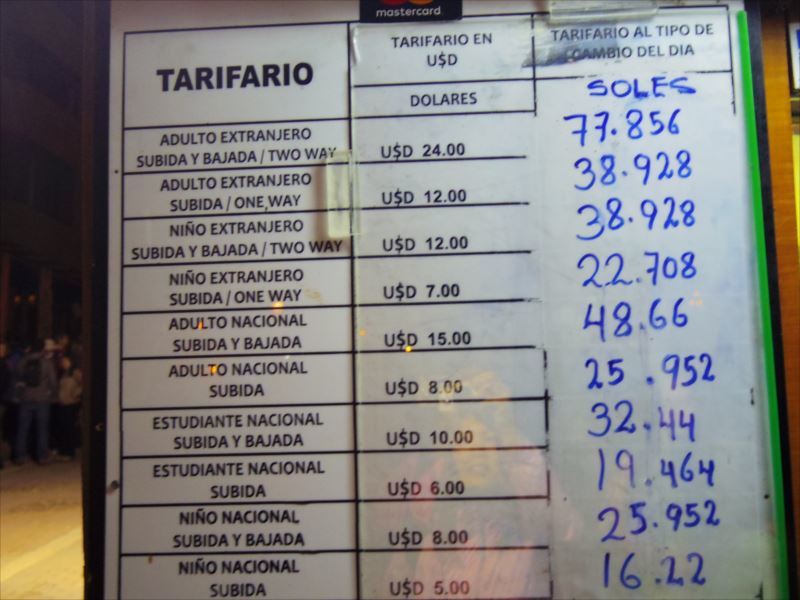 mastercard
TARIFARIO
TARIFARIO EN
U$D
TARIFARIO AL TIPO DE
CAMBIO DEL DIA
DOLARES
SOLES
ADULTO EXTRANJERO
SUBIDA Y BAJADA / TWO WAY
U$D 24.00
77.856
ADULTO EXTRANJERO
SUBIDA / ONE WAY
U$D 12.00
38.928
NIÑO EXTRANJERO
SUBIDA Y BAJADA / TWO WAY
U$D 12.00
38.928
NIÑO EXTRANJERO
SUBIDA / ONE WAY
U$D 7.00
22.708
ADULTO NACIONAL
SUBIDA Y BAJADA
U$D 15.00
48.66
ADULTO NACIONAL
SUBIDA
U$D 8.00
25.952
ESTUDIANTE NACIONAL
SUBIDA Y BAJADA
U$D 10.00
32.44
ESTUDIANTE NACIONAL
SUBIDA
U$D 6.00
19.464
NIÑO NACIONAL
SUBIDA Y BAJADA
U$D 8.00
25.952
NIÑO NACIONAL
SUBIDA
U$D 5.00
16.22